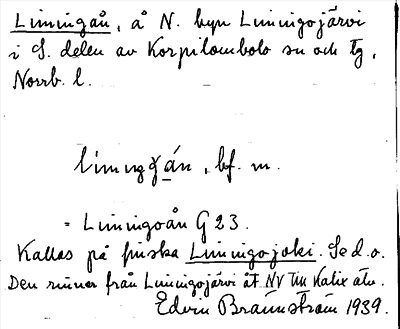 Liningån, å N. byn Liningojärvi
i S. delen av Korpilombolo sn och tg,
Norrb. l.
líningán, bf. m.
= Liningoån G 23.
Kallas på finska Liningojoki. Se d.o.
Den rinner från Liningojärvi åt NV till Kalix älv.
Edvin Brännström 1939.